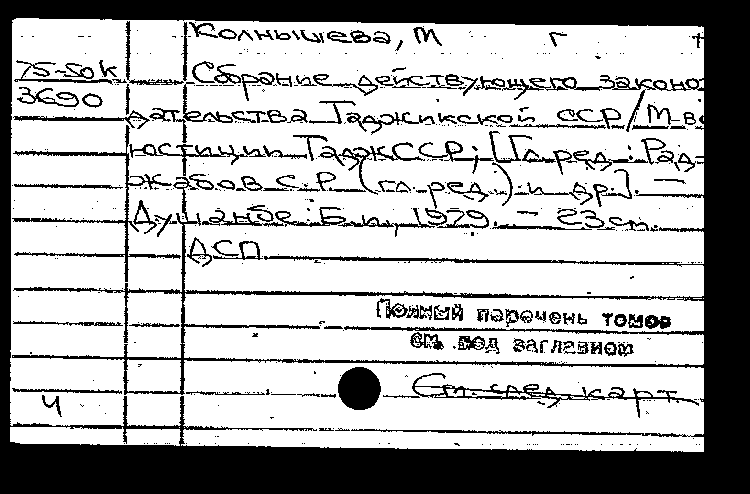 Колнышева, М г
75-50к Собрание действующего законо
3690 дательства Таджикской ССР/М-во
юстиции ТаджССР; [Гл. ред.: Рад-
жабов С.Р. (гл. ред.) и др.]. —
Душанбе: Б.и., 1979. – 23 см.
ДСП
Полный перечень томов
см. под заглавием
См. след. карт.
Ч